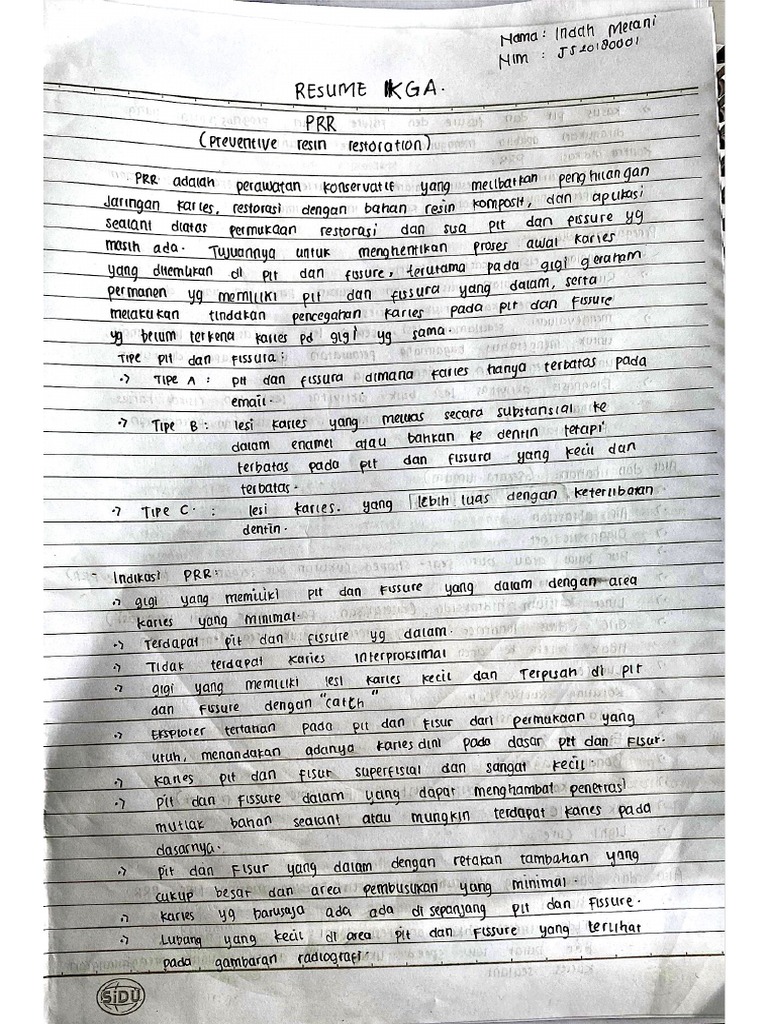 Nama : Indah Meiani
NIM : J520180001
RESUME IKGA.
PRR
(Preventive resin restoration)
PRR adalah perawatan konservatif yang melibatkan penghilangan
Jaringan karies, restorasi dengan bahan resin komposit, dan aplikasi
sealant diatas permukaan restorasi dan sisa pit dan fissure yg
masih ada. Tujuannya untuk menghentikan proses awal karies
yang ditemukan di pit dan fissure, terutama pada gigi geraham
permanen yg memiliki pit dan fissura yang dalam, serta
melakukan tindakan pencegahan karies pada pit dan fissure
yg belum terkena karies pd gigi yg sama.
Tipe pit dan fissura :
·> Tipe A : pit dan fissura dimana karies hanya terbatas pada
email.
·> Tipe B : lesi karies yang meluas secara substansial ke
dalam enamel atau bahkan ke dentin tetapi
terbatas pada pit dan fissura yang kecil dan
terbatas.
·> Tipe C : lesi karies. yang lebih luas dengan keterlibatan
dentin.
Indikasi PRR :
·> gigi yang memiliki pit dan fissure yang dalam dengan area
karies yang minimal.
·> Terdapat pit dan fissure yg dalam.
·> Tidak terdapat karies interproksimal
·> gigi yang memiliki lesi karies kecil dan Terpisah di pit
dan fissure dengan "catch"
·> Eksplorer tertahan pada pit dan fisur dari permukaan yang
utuh, menandakan adanya karies dini pada dasar pit dan fisur.
·> karies pit dan fisur superfisial dan sangat kecil.
·> pit dan fissure dalam yang dapat menghambat penetrasi
mutlak bahan sealant atau mungkin terdapat karies pada
dasarnya.
·> pit dan fisur yang dalam dengan retakan tambahan yang
cukup besar dan area pembusukan yang minimal.
·> karies yg barusaja ada ada di sepanjang pit dan fissure.
·> Lubang yang kecil di area pit dan fissure yang terlihat
pada gambaran radiografi.
SIDU